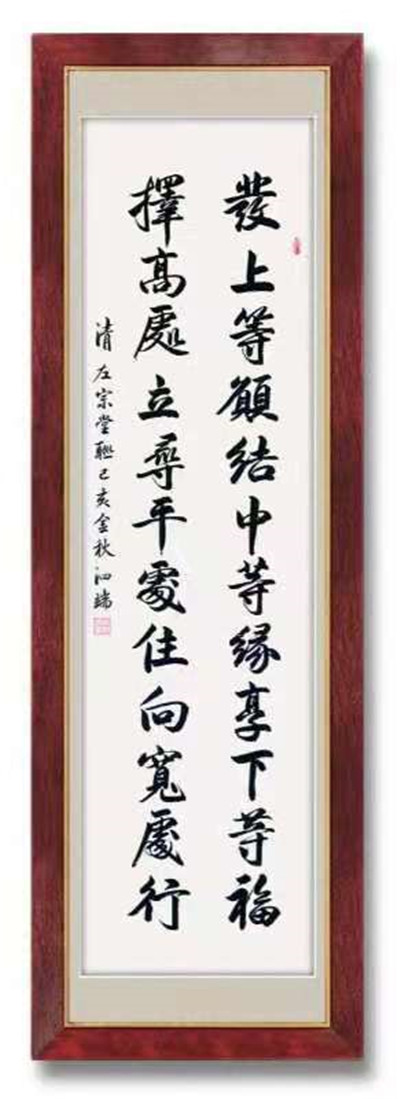 發上等願結中等緣享下等福
擇高處立尋平處住向寬處行
清左宗堂聯己亥金秋泗端